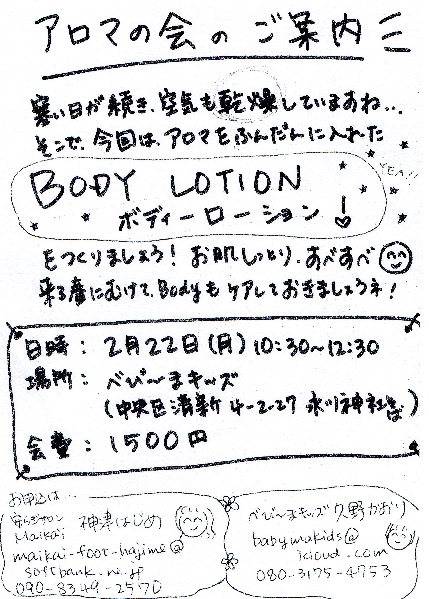 アロマの会のご案内
寒い日が続き、空気も乾燥していますね...
そこで、今回は、アロマをふんだんに入れた
YEA!!
BODY LOTION
ボディーローション!
をつくりましょう! お肌しっとり、すべすべ
来る春にむけて、Bodyもケアしておきましょうネ!
日時: 2月22日(月) 10:30~12:30
場所: べび~まキッズ
(中央区清新 4-2-27 氷川神社そば)
会費: 1500円
お申込は...
サロン
Maikai 神津はじめ
maikai-foot-hajime@
softbank.ne.jp
090-8349-2570
べび~まキッズ 久野かおり
babymakids@
icloud.com
080-3175-4753